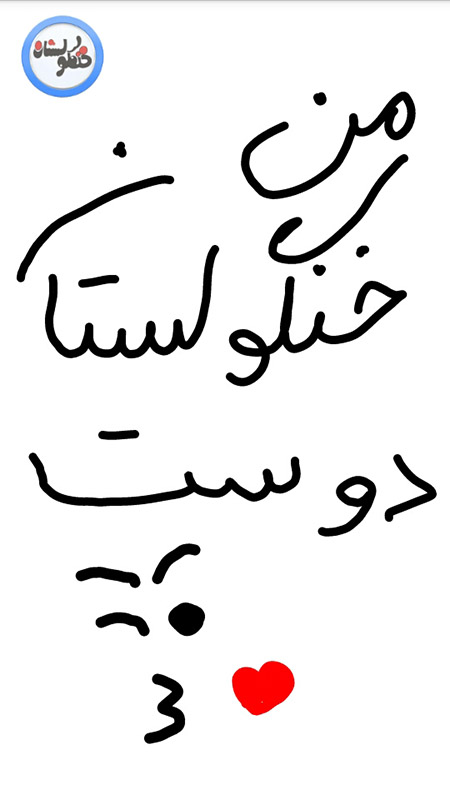 خنگولستان
من
خنگولستان
دوست